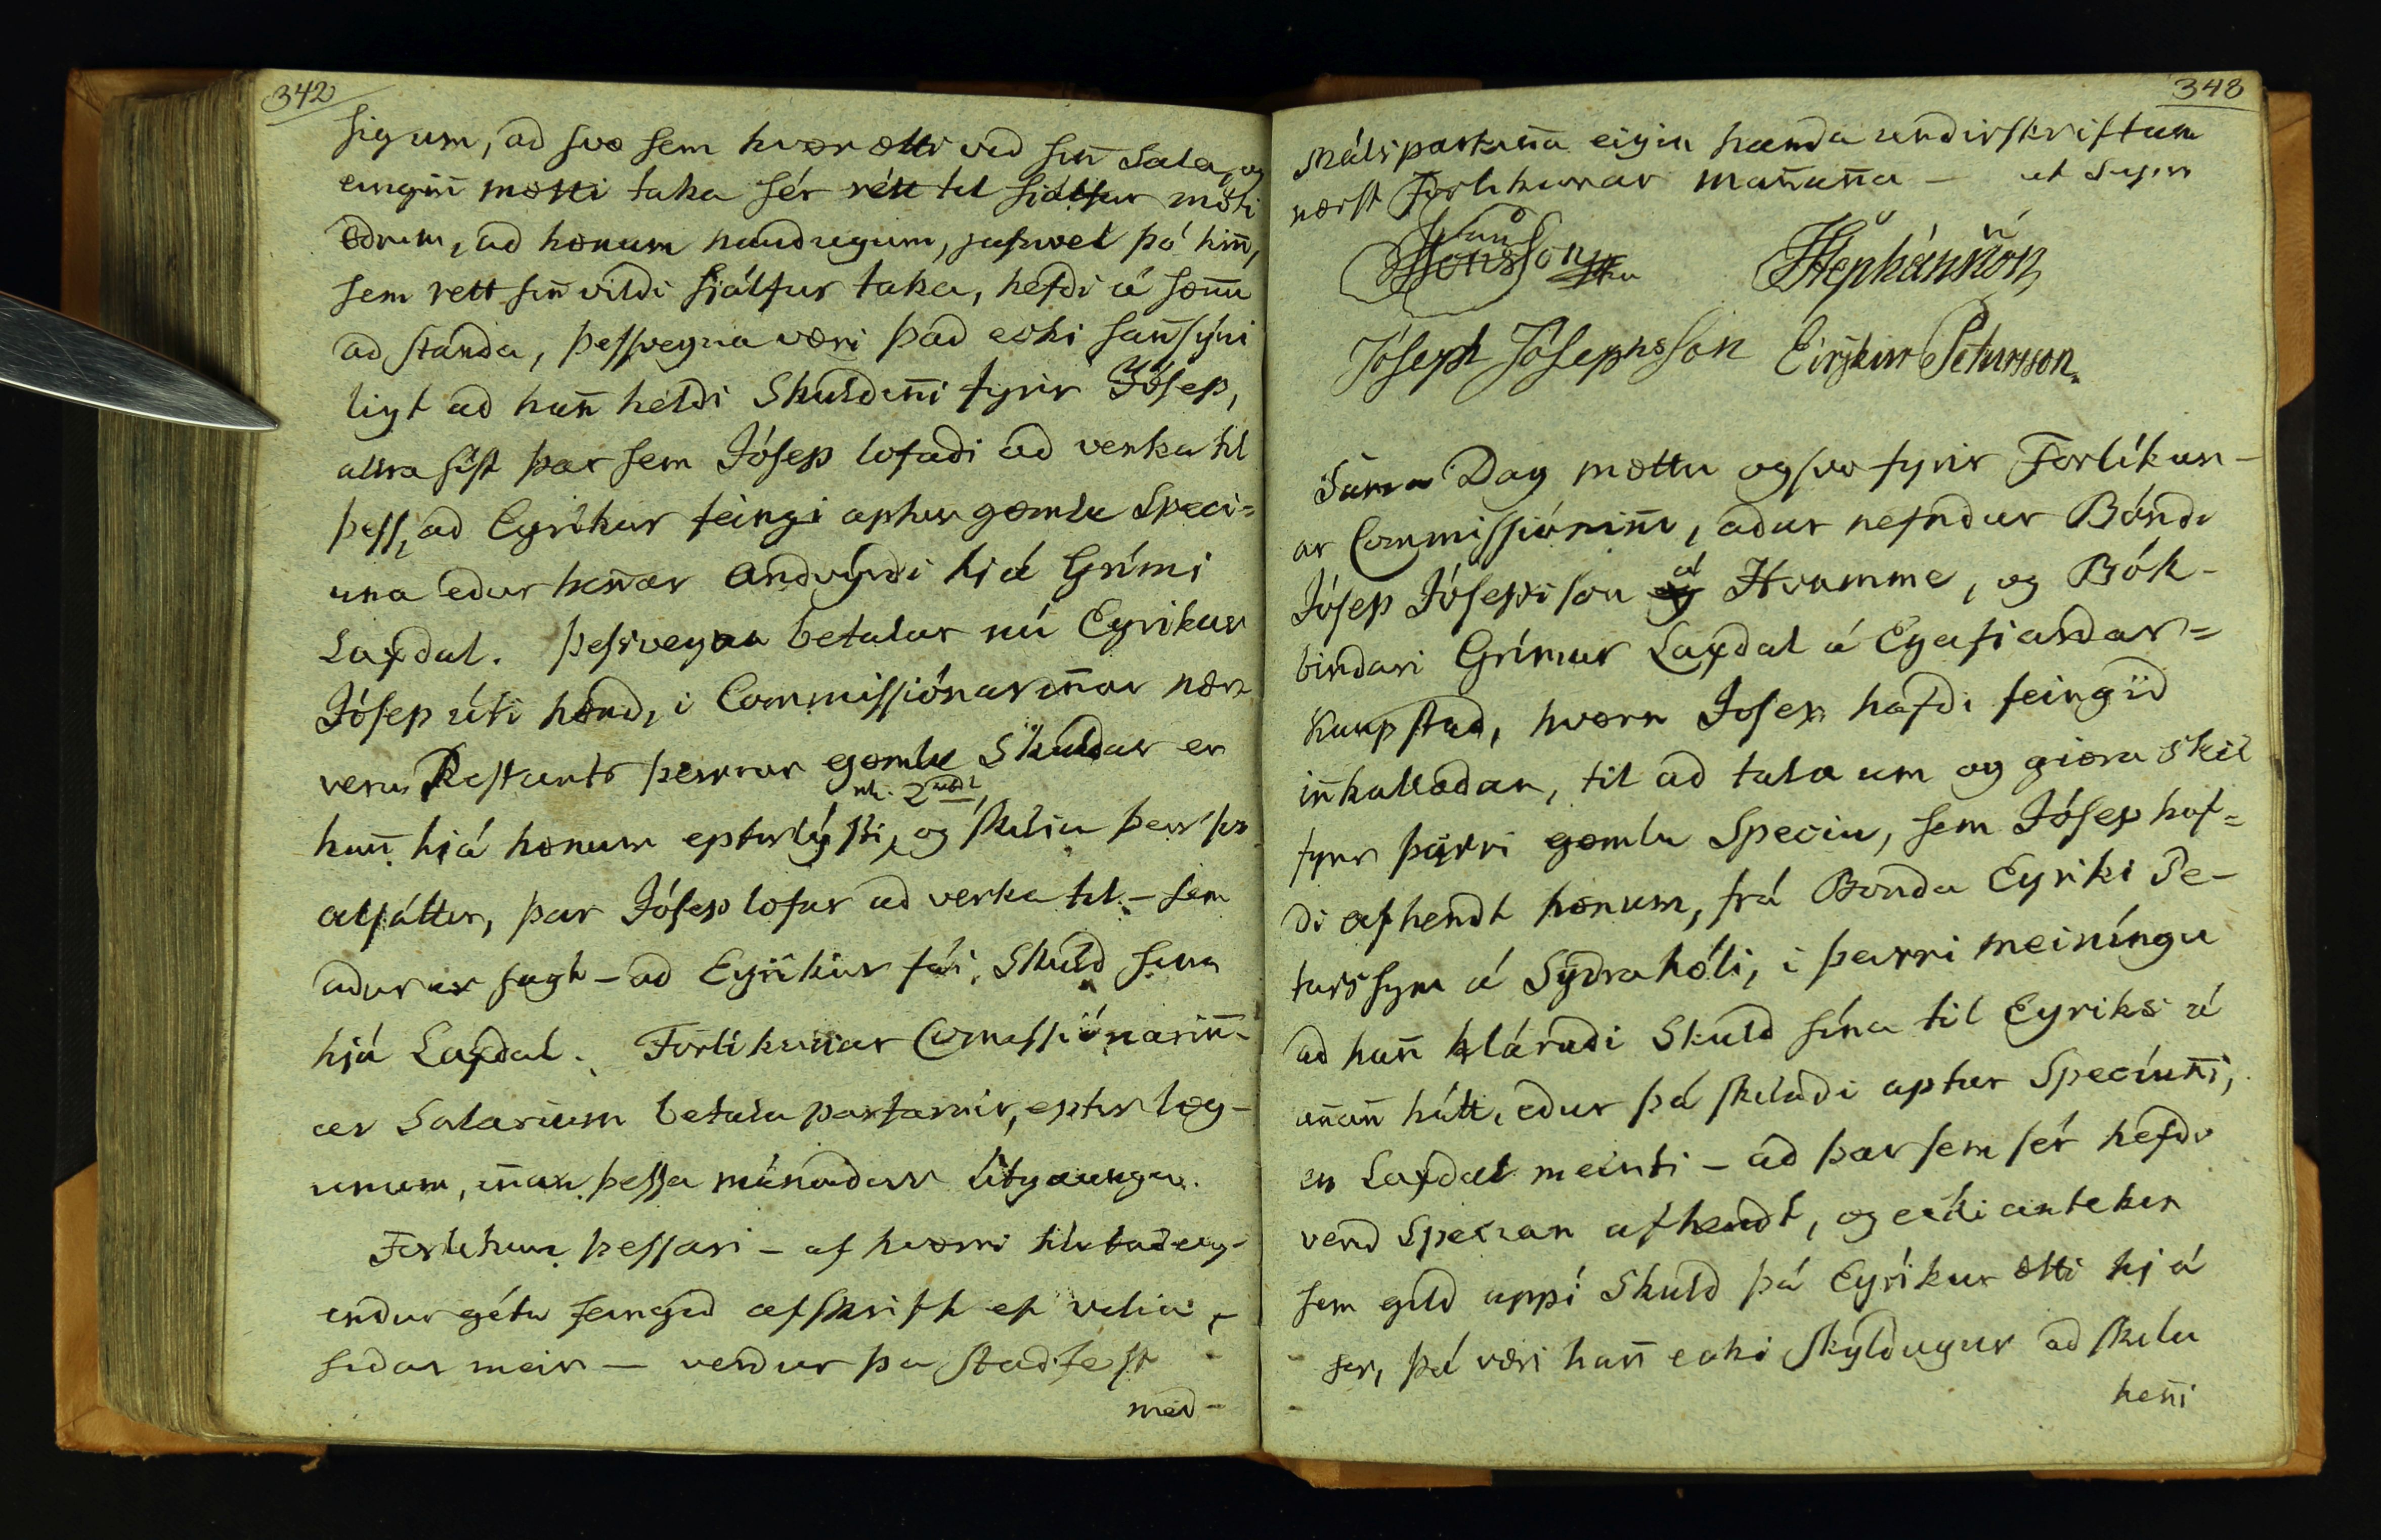 342
sig um, að svo sem hvør ætti við sinn Sala, og
eingiñ mætti taka sér rétt til sjálfur móti
øðrum, að hønum nauðugum, jafnvel þó hiñ,
sem rett siñ vildi sjálfur taka, hefði á søñu
að standa, þessvegna væri það ecki sañsýni
ligt að hañ héldi Skuldiñi fyrir Jósep,
allra síst þar sem Jósep lofaði að verka til
þess, að Eyríkur feingi aptur gømlu Speci=
una eður heñar andvyrði hjá Grími
Laxdal. Þessvegna betalar nú Eyrikur
Jósep úti hønd, i Commissiónariñar nær-
veru Restants þeirrar gømlu Skuldar er
nl. 2
hañ hjá hønum eptirlýsti, og skilia þeir so
alsáttir, þar Jósep lofar að verka til - sem
aður er sagt - að Eyríkur fái Skuld sína
hjá Laxdal. Forlíkunar Comissiónariñ-
ar Salarium betala partarnir, eptir løg-
unum, iñan þessa mánaðar útgaungu.
Forlikun þessari - af hvørri hlutaðeig-
endur géta feingið afskrift ef vilia,
siðar meir - verður þa staðfest
með-
343
málspartaña eigin handa undirskriftum
næst Forlikunar mañaña - ut Supra
JónsSon
Stephánsson
Jóseph JósephsSon Eirikur Petursson.
Sama Dag mættu ogsvo fyrir Forlíkun-
ar Commissióninni, aður nefndur Bóndi
Jósep Jósepsson
að
Hvamme, og Bók-
bindari Grímur Laxdal á Eyafiarðar=
Kaupstað, hvørn Josep hafði feingið
iñkallaðan, til að tala um og giøra Skil
fyrir þeirri gømlu Speciu, sem Jósep haf=
ði afhendt hønum, frá Bonda Eyriki Pe-
turssyni á Syðrahóli, i þeirri meiníngu
að hañ kláraði Skuld sína til Eyriks á
añañ hátt, eður þá skilaði aptur Speciuñi,
en Laxdal meinti - að þar sem sér hefði
verið Specian afhendt, og ecki antekin
sem gild uppí Skuld þá Eyríkur ætti hjá
ser, þá væri hañ ecki skyldugur að skila
heñi